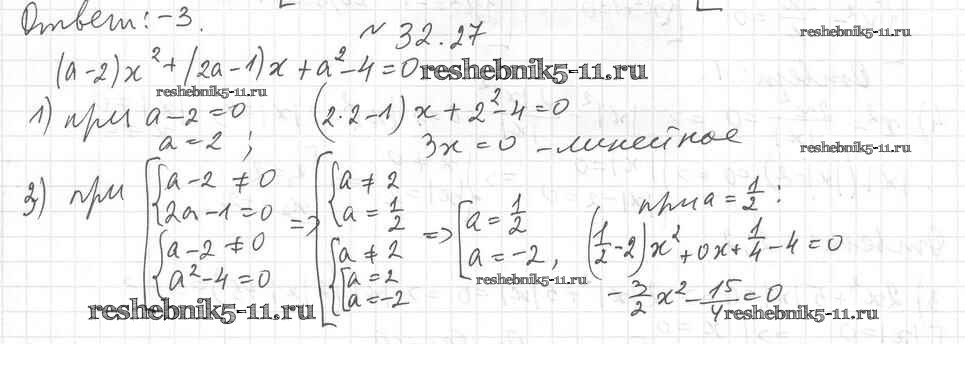 Ответ: -3.
№ 32.27
(a-2)x²+(2a-1)x+a²-4=0 reshebnik5-11.ru
reshebnik5-11.ru
reshebnik5-11.ru
1) при a-2=0 (2·2-1)x+2²-4=0
a=2; 3x=0 - линейное
reshebnik5-11.ru
2) при [{a-2≠0 2a-1=0 {a-2≠0 a²-4=0 => [{a≠2 a=1/2 {a≠2 [a=2 a=-2 => [a=1/2 a=-2,
при a=1/2:
(1/2-2)x²+0x+1/4-4=0
-3/2x²-15/4=0
reshebnik5-11.ru
reshebnik5-11.ru
reshebnik5-11.ru